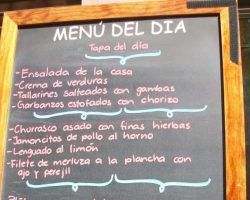 MENÚ DEL DIA
Tapa del día
-Ensalada de la casa
-Crema de verduras
-Tallarines salteados con gambas
-Garbanzos estofados con chorizo
-Churrasco asado con finas hierbas
-Jamoncitos de pollo al horno
-Lenguado al limón
-Filete de merluza a la plancha con
ajo y perejil